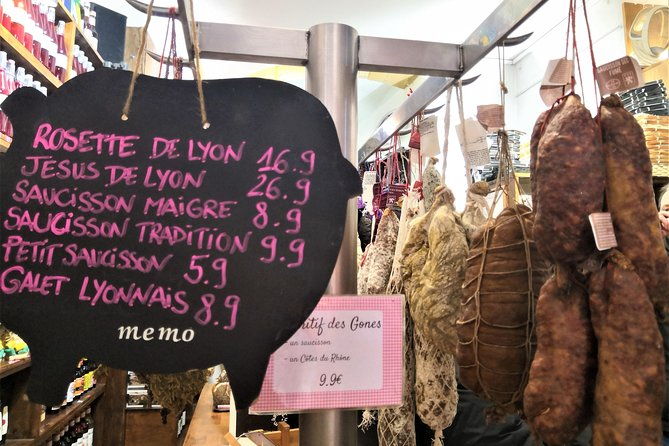 ROSETTE DE LYON 16.9
JESUS DE LYON 26.9
SAUCISSON MAIGRE 8.9
SAUCISSON TRADITION 9.9
PETIT SAUCISSON 5.9
GALET LYONNAIS 8.9
memo
itif des Gones
- un saucisson
- un Côtes du Rhône
9.9€